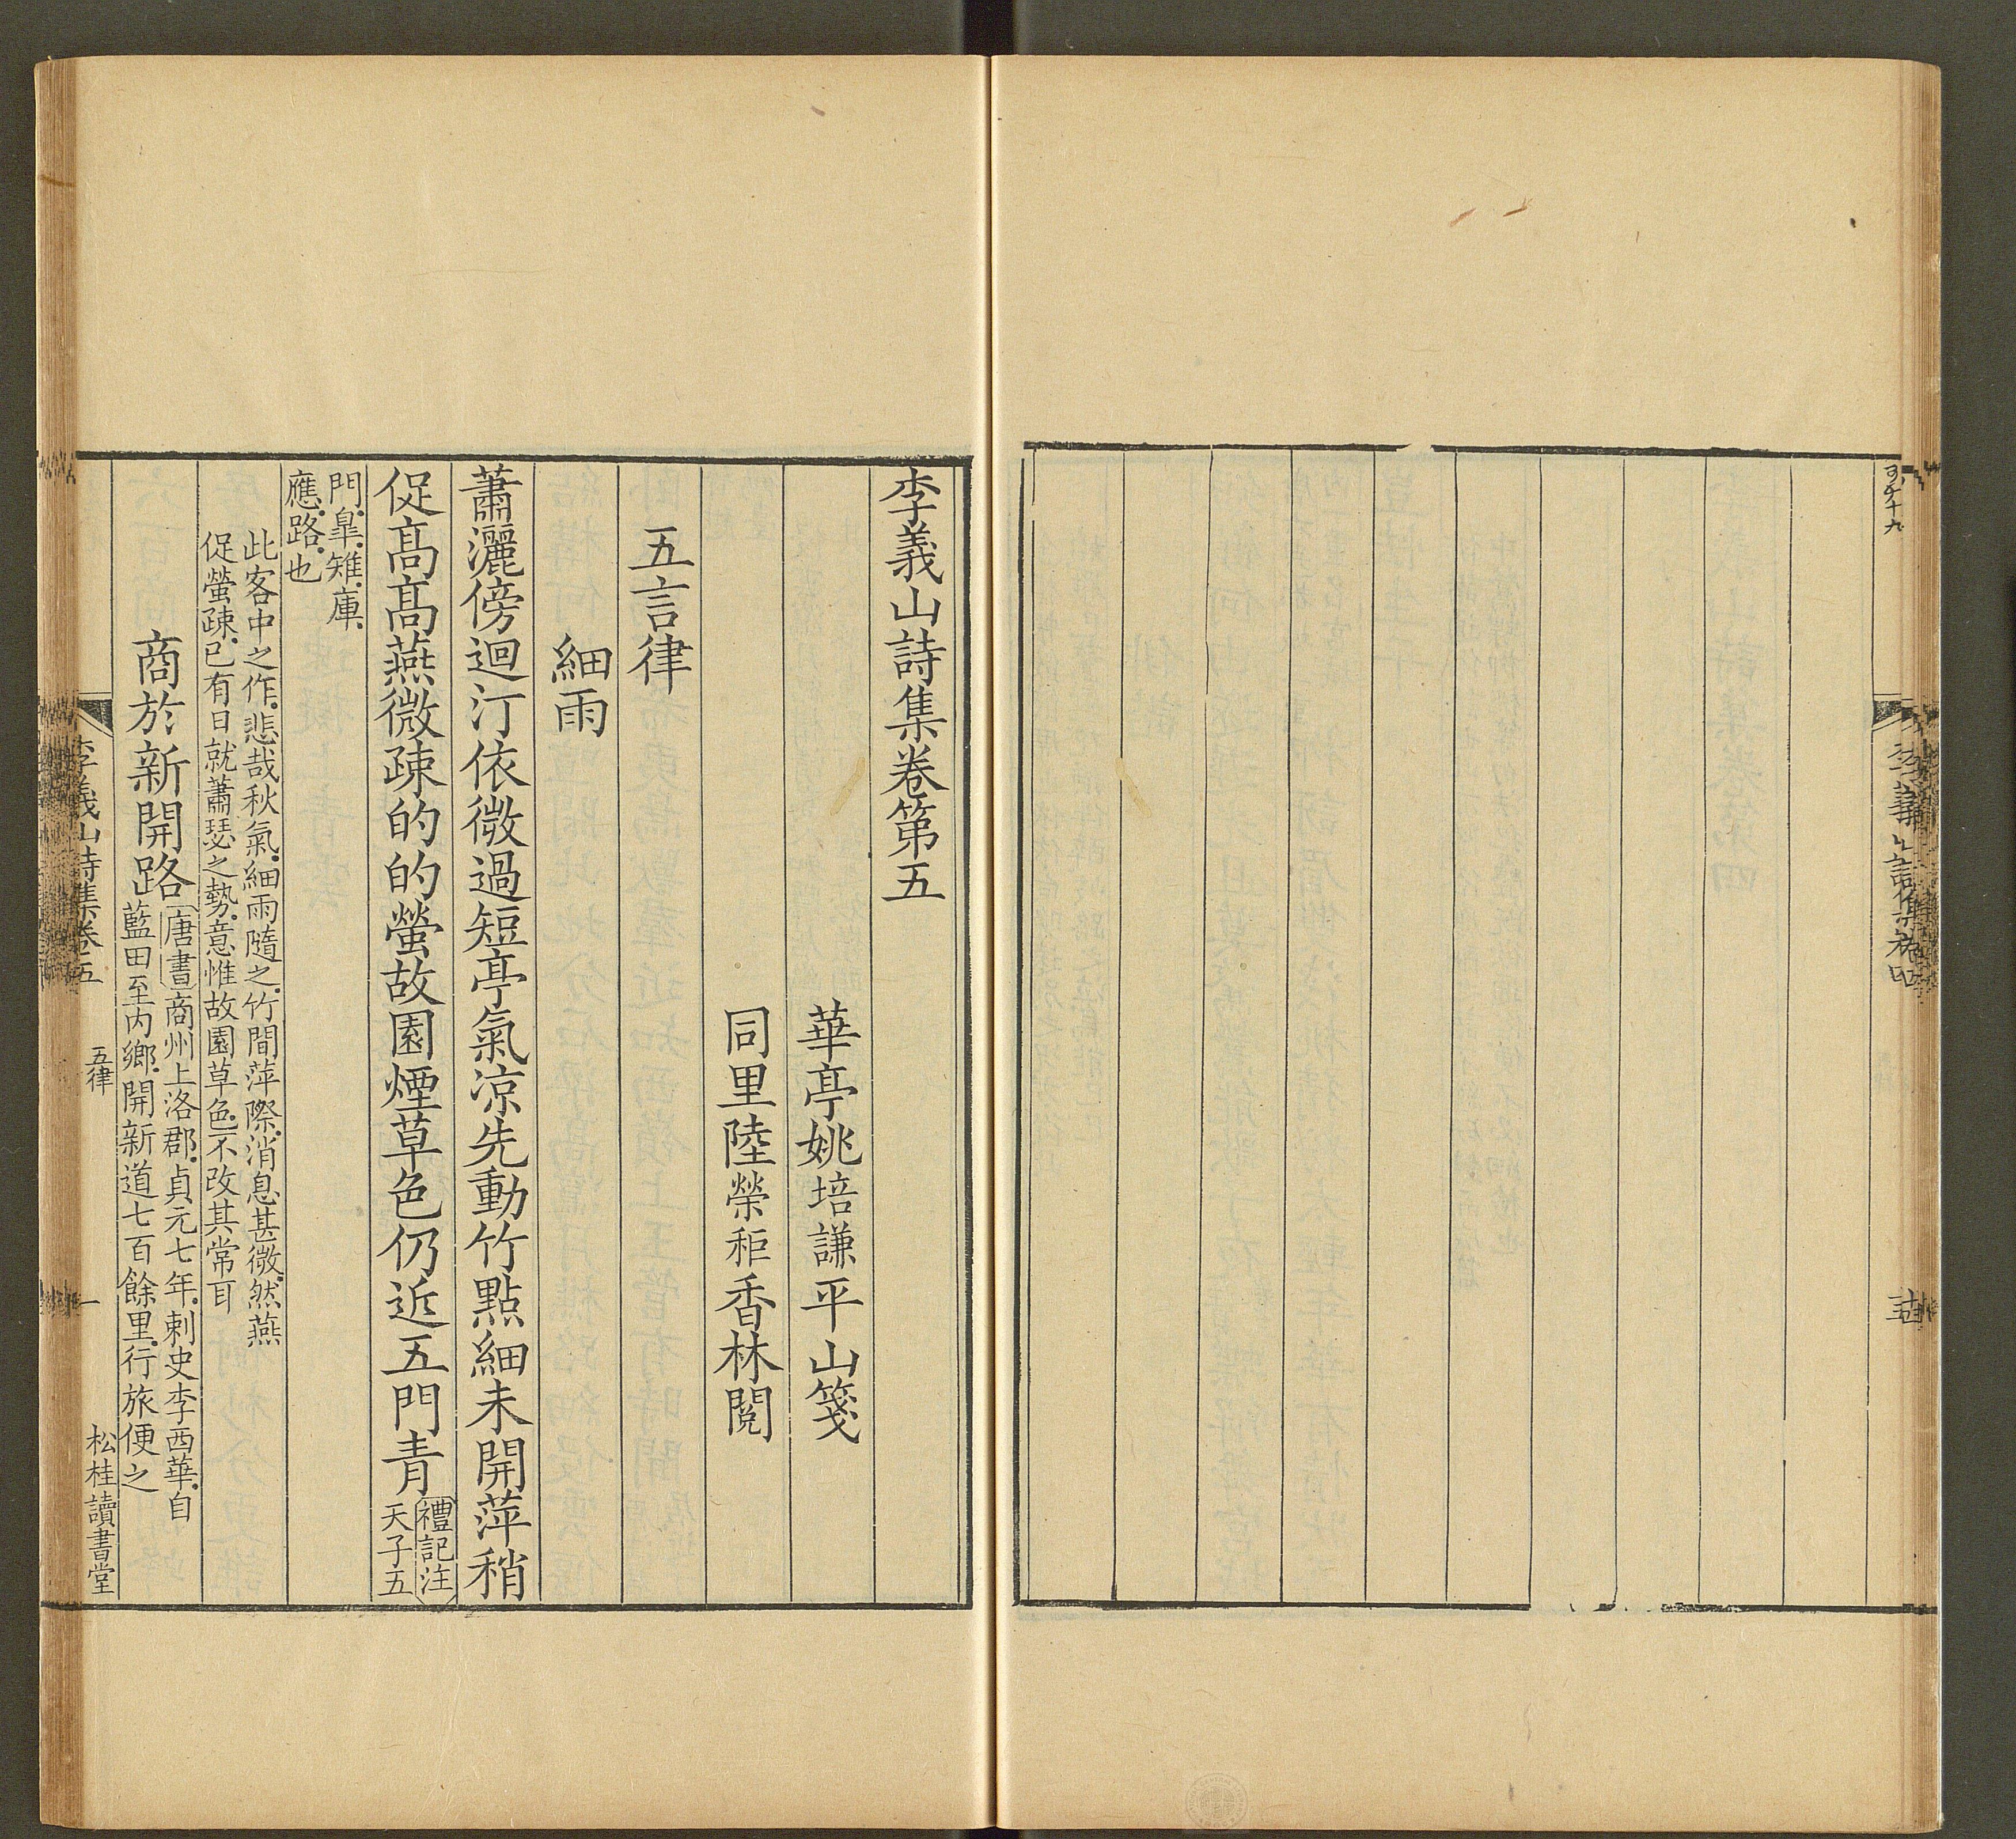 李義山詩集卷第五
華亭姚培謙平山箋
同里陸榮秬香林閱
五言律
細雨
蕭灑傍迴汀依微過短亭氣涼先動竹點細未開萍稍
促高高燕微疎的的螢故園煙草色仍近五門青禮記注天子五
門皐雉庫
應路也
此客中之作悲哉秋氣細雨隨之竹間萍際消息甚微然燕
促螢疎已有日就蕭瑟之勢意惟故園草色不改其常耳
商於新開路唐書商州上洛郡貞元七年刺史李西華自
藍田至內鄉開新道七百餘里行旅便之
李義山詩集卷五
五律
一
松桂讀書堂